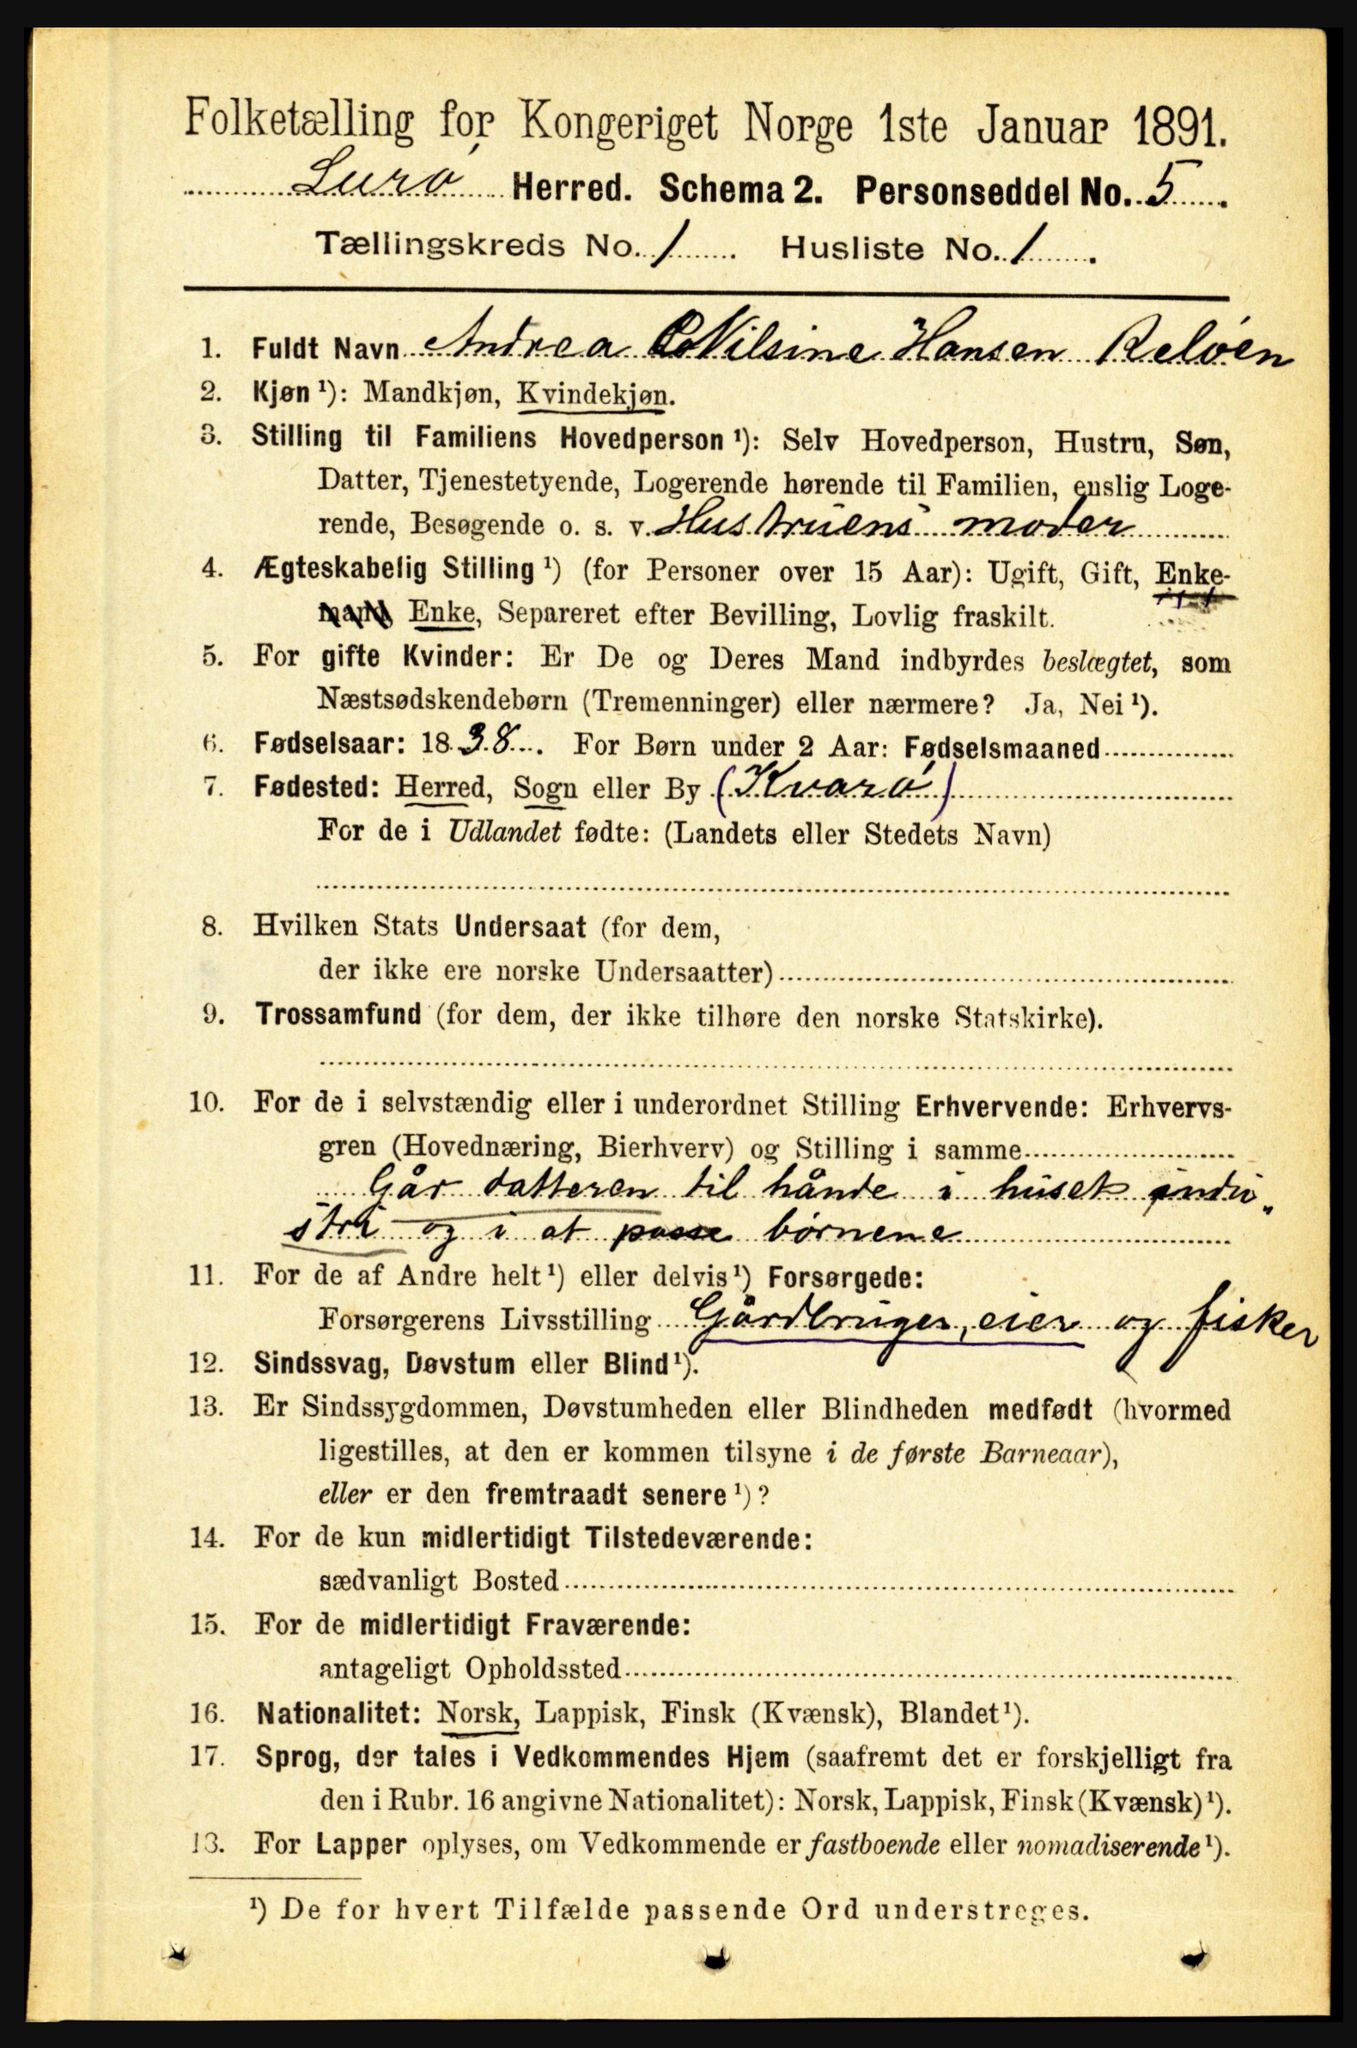 Folketælling for Kongeriget Norge 1ste Januar 1891.
Lurø Herred. Schema 2. Personseddel No. 5
Tællingskreds No. 1 Husliste No. 1.
1. Fuldt Navn Andrea Nilsine Hansen Reløen
2. Kjøn ¹): Mandkjøn, Kvindekjøn.
3. Stilling til Familiens Hovedperson ¹): Selv Hovedperson, Hustru, Søn,
Datter, Tjenestetyende, Logerende hørende til Familien, enslig Loge-
rende, Besøgende o. s. v. Hustruens moder
4. Ægteskabelig Stilling ¹) (for Personer over 15 Aar): Ugift, Gift, Enke-
mand, Enke, Separeret efter Bevilling, Lovlig fraskilt.
5. For gifte Kvinder: Er De og Deres Mand indbyrdes beslægtet, som
Næstsødskendebørn (Tremenninger) eller nærmere? Ja, Nei ¹).
6. Fødselsaar: 1838. For Børn under 2 Aar: Fødselsmaaned
7. Fødested: Herred, Sogn eller By (Kvarø)
For de i Udlandet fødte: (Landets eller Stedets Navn)
8. Hvilken Stats Undersaat (for dem,
der ikke ere norske Undersaatter)
9. Trossamfund (for dem, der ikke tilhøre den norske Statskirke).
10. For de i selvstændig eller i underordnet Stilling Erhvervende: Erhvervs-
gren (Hovednæring, Bierhverv) og Stilling i samme
Går datteren til hånde i huset indu-
stri og i at passe børnene
11. For de af Andre helt ¹) eller delvis ¹) Forsørgede:
Forsørgerens Livsstilling Gårdbruger, eier og fisker
12. Sindssvag, Døvstum eller Blind ¹).
13. Er Sindssygdommen, Døvstumheden eller Blindheden medfødt (hvormed
ligestilles, at den er kommen tilsyne i de første Barneaar),
eller er den fremtraadt senere ¹)?
14. For de kun midlertidigt Tilstedeværende:
sædvanligt Bosted
15. For de midlertidigt Fraværende:
antageligt Opholdssted
16. Nationalitet: Norsk, Lappisk, Finsk (Kvænsk), Blandet ¹).
17. Sprog, der tales i Vedkommendes Hjem (saafremt det er forskjelligt fra
den i Rubr. 16 angivne Nationalitet): Norsk, Lappisk, Finsk (Kvænsk) ¹).
13. For Lapper oplyses, om Vedkommende er fastboende eller nomadiserende ¹).
¹) De for hvert Tilfælde passende Ord understreges.